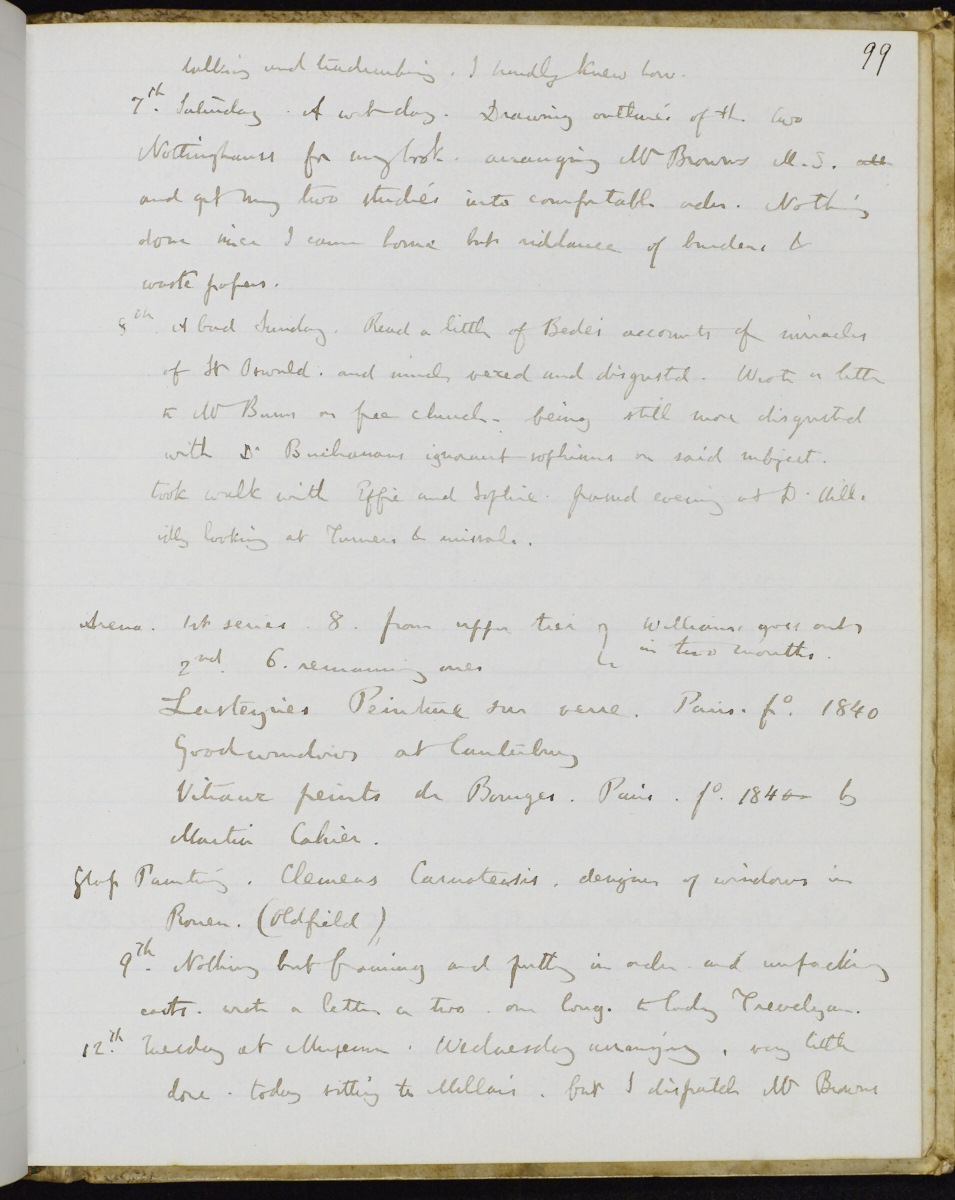 99
talking and . I hardly knew how.
7th. Saturday. A wet day. Drawing outlines of the two
Nottinghams for my book. arranging Mr Browns M.S.
and get my two studies into comfortable order. Nothing
done since I came home but riddance of burdens &
waste papers.
8th. A bad Sunday. Read a little of Bede's accounts of miracles
of St Oswald. and much vexed and disgusted. Wrote a letter
to Mr Burns on free church. being still more disgusted
with Dr Buchanans ignorant sophisms on said subject.
took walk with Effie and Sophie. passed evening at D. Hill.
idly looking at Turners & missals.
Arena. 1st series. 8. from upper tier of Williams, goes out
in two months.
2nd. 6. remaining ones
Lasteyries Peinture sur verre. Paris. fo. 1840
Good windows at Canterbury
Vitraux peints de Bourges. Paris. fo. 184 by
Martin Cahier.
Glass Painting. Clemens Carnotensis. designer of windows in
Rouen. (Oldfield)
9Th. Nothing but framing and putting in order and unpacking
casts. wrote a letter or two. one long. to Lady Trevelyan.
12.th Tuesday at Museum. Wednesday arranging, very little
done. today sitting to Millais. but I dispatch Mr Browns